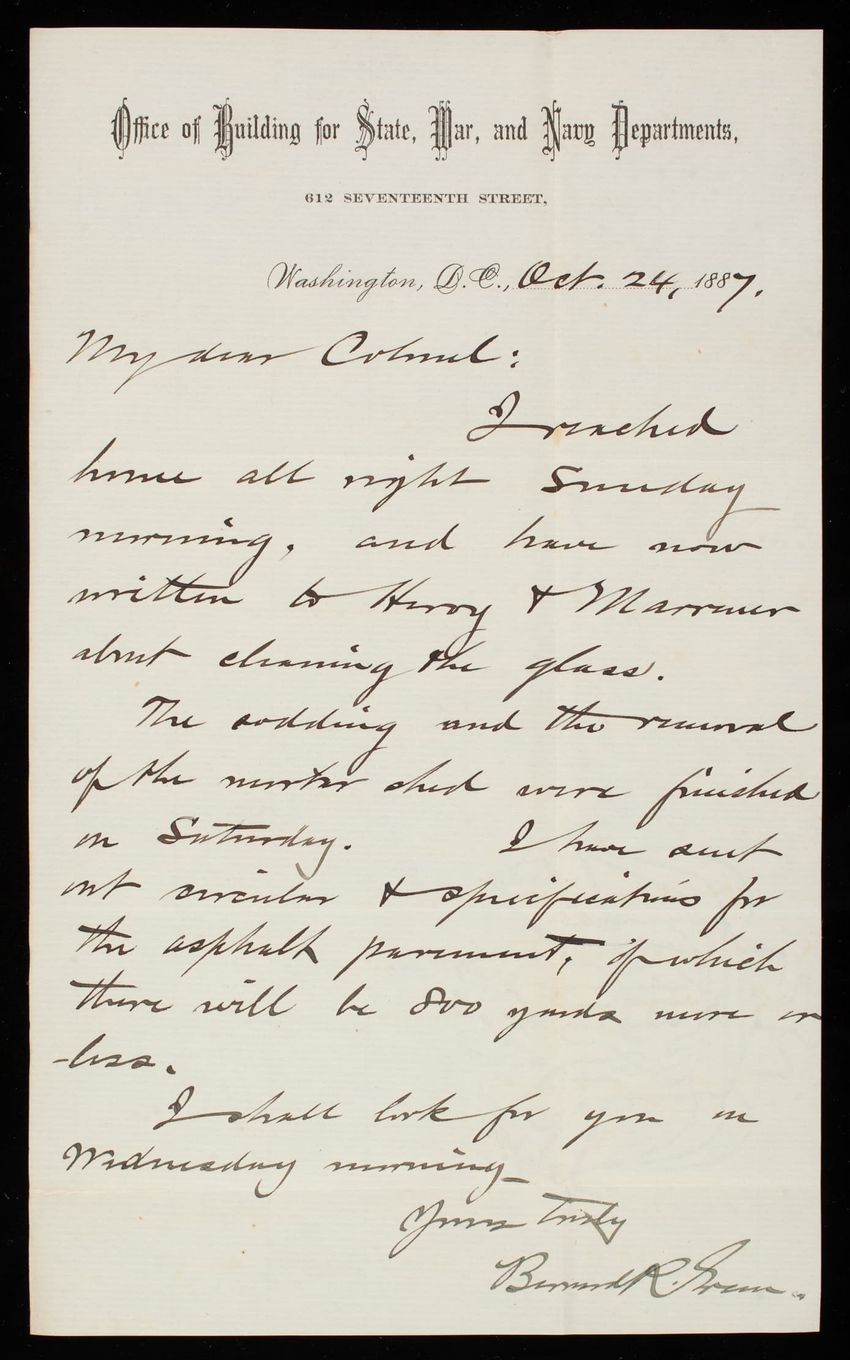 Office of Building for State, War, and Navy Departments,
612 SEVENTEENTH STREET,
Washington, D.C., Oct. 24, 1887.
My dear Colonel:
I reached
home all right Sunday
morning, and have now
written to &
about cleaning the glass.
The sodding and the removal
of the mortar shed were finished
on Saturday. I have sent
out circular & specifications for
the asphalt pavement, of which
there will be 800 yards more or
less.
I shall look for you on
Wednesday morning
Yours truly
Bernard R. Green.